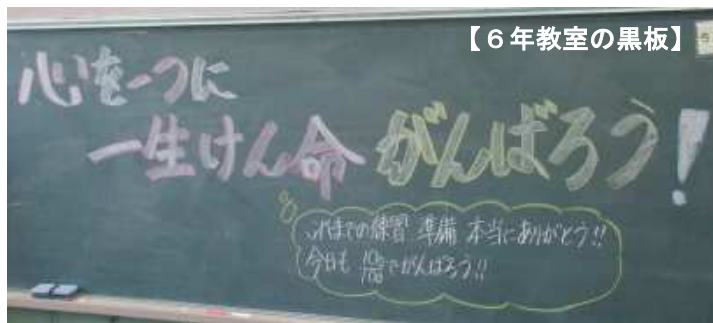 【６年教室の黒板】
心を一つに
一生けん命 がんばろう！
これまでの練習 準備 本当にありがとう!!
今日も 100%でがんばろう!!